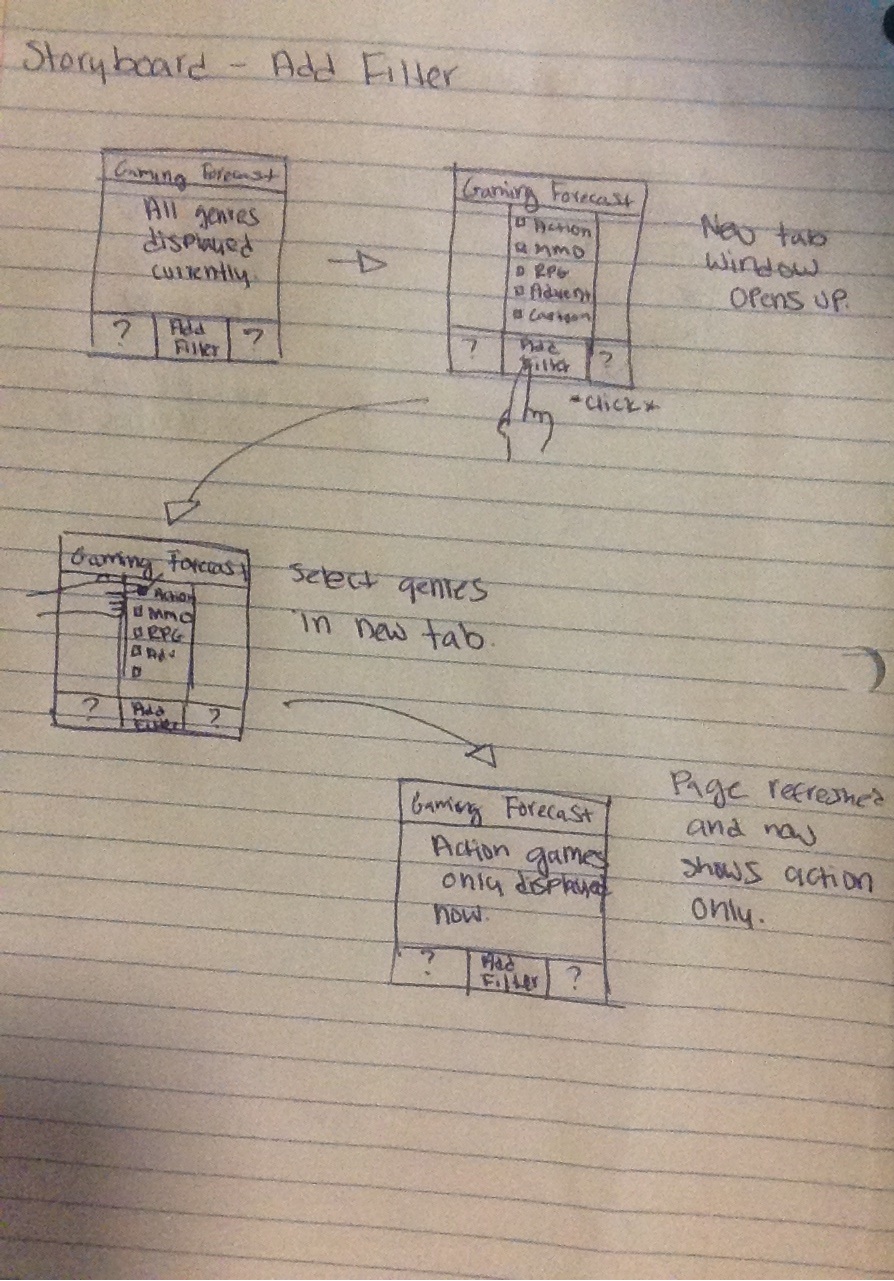 Storyboard - Add Filter
Gaming Forecast
All genres
displayed
currently.
? Add Filter ?
Gaming Forecast
Action
MMO
RPG
Advent
Cartoon
? Add Filter ?
*click*
New tab
window
opens up.
Gaming Forecast
Action
MMO
RPG
Adv
? Add Filter ?
Select genres
in new tab.
Gaming Forecast
Action games
only displayed
now.
? Add Filter ?
Page refreshed
and now
shows action
only.